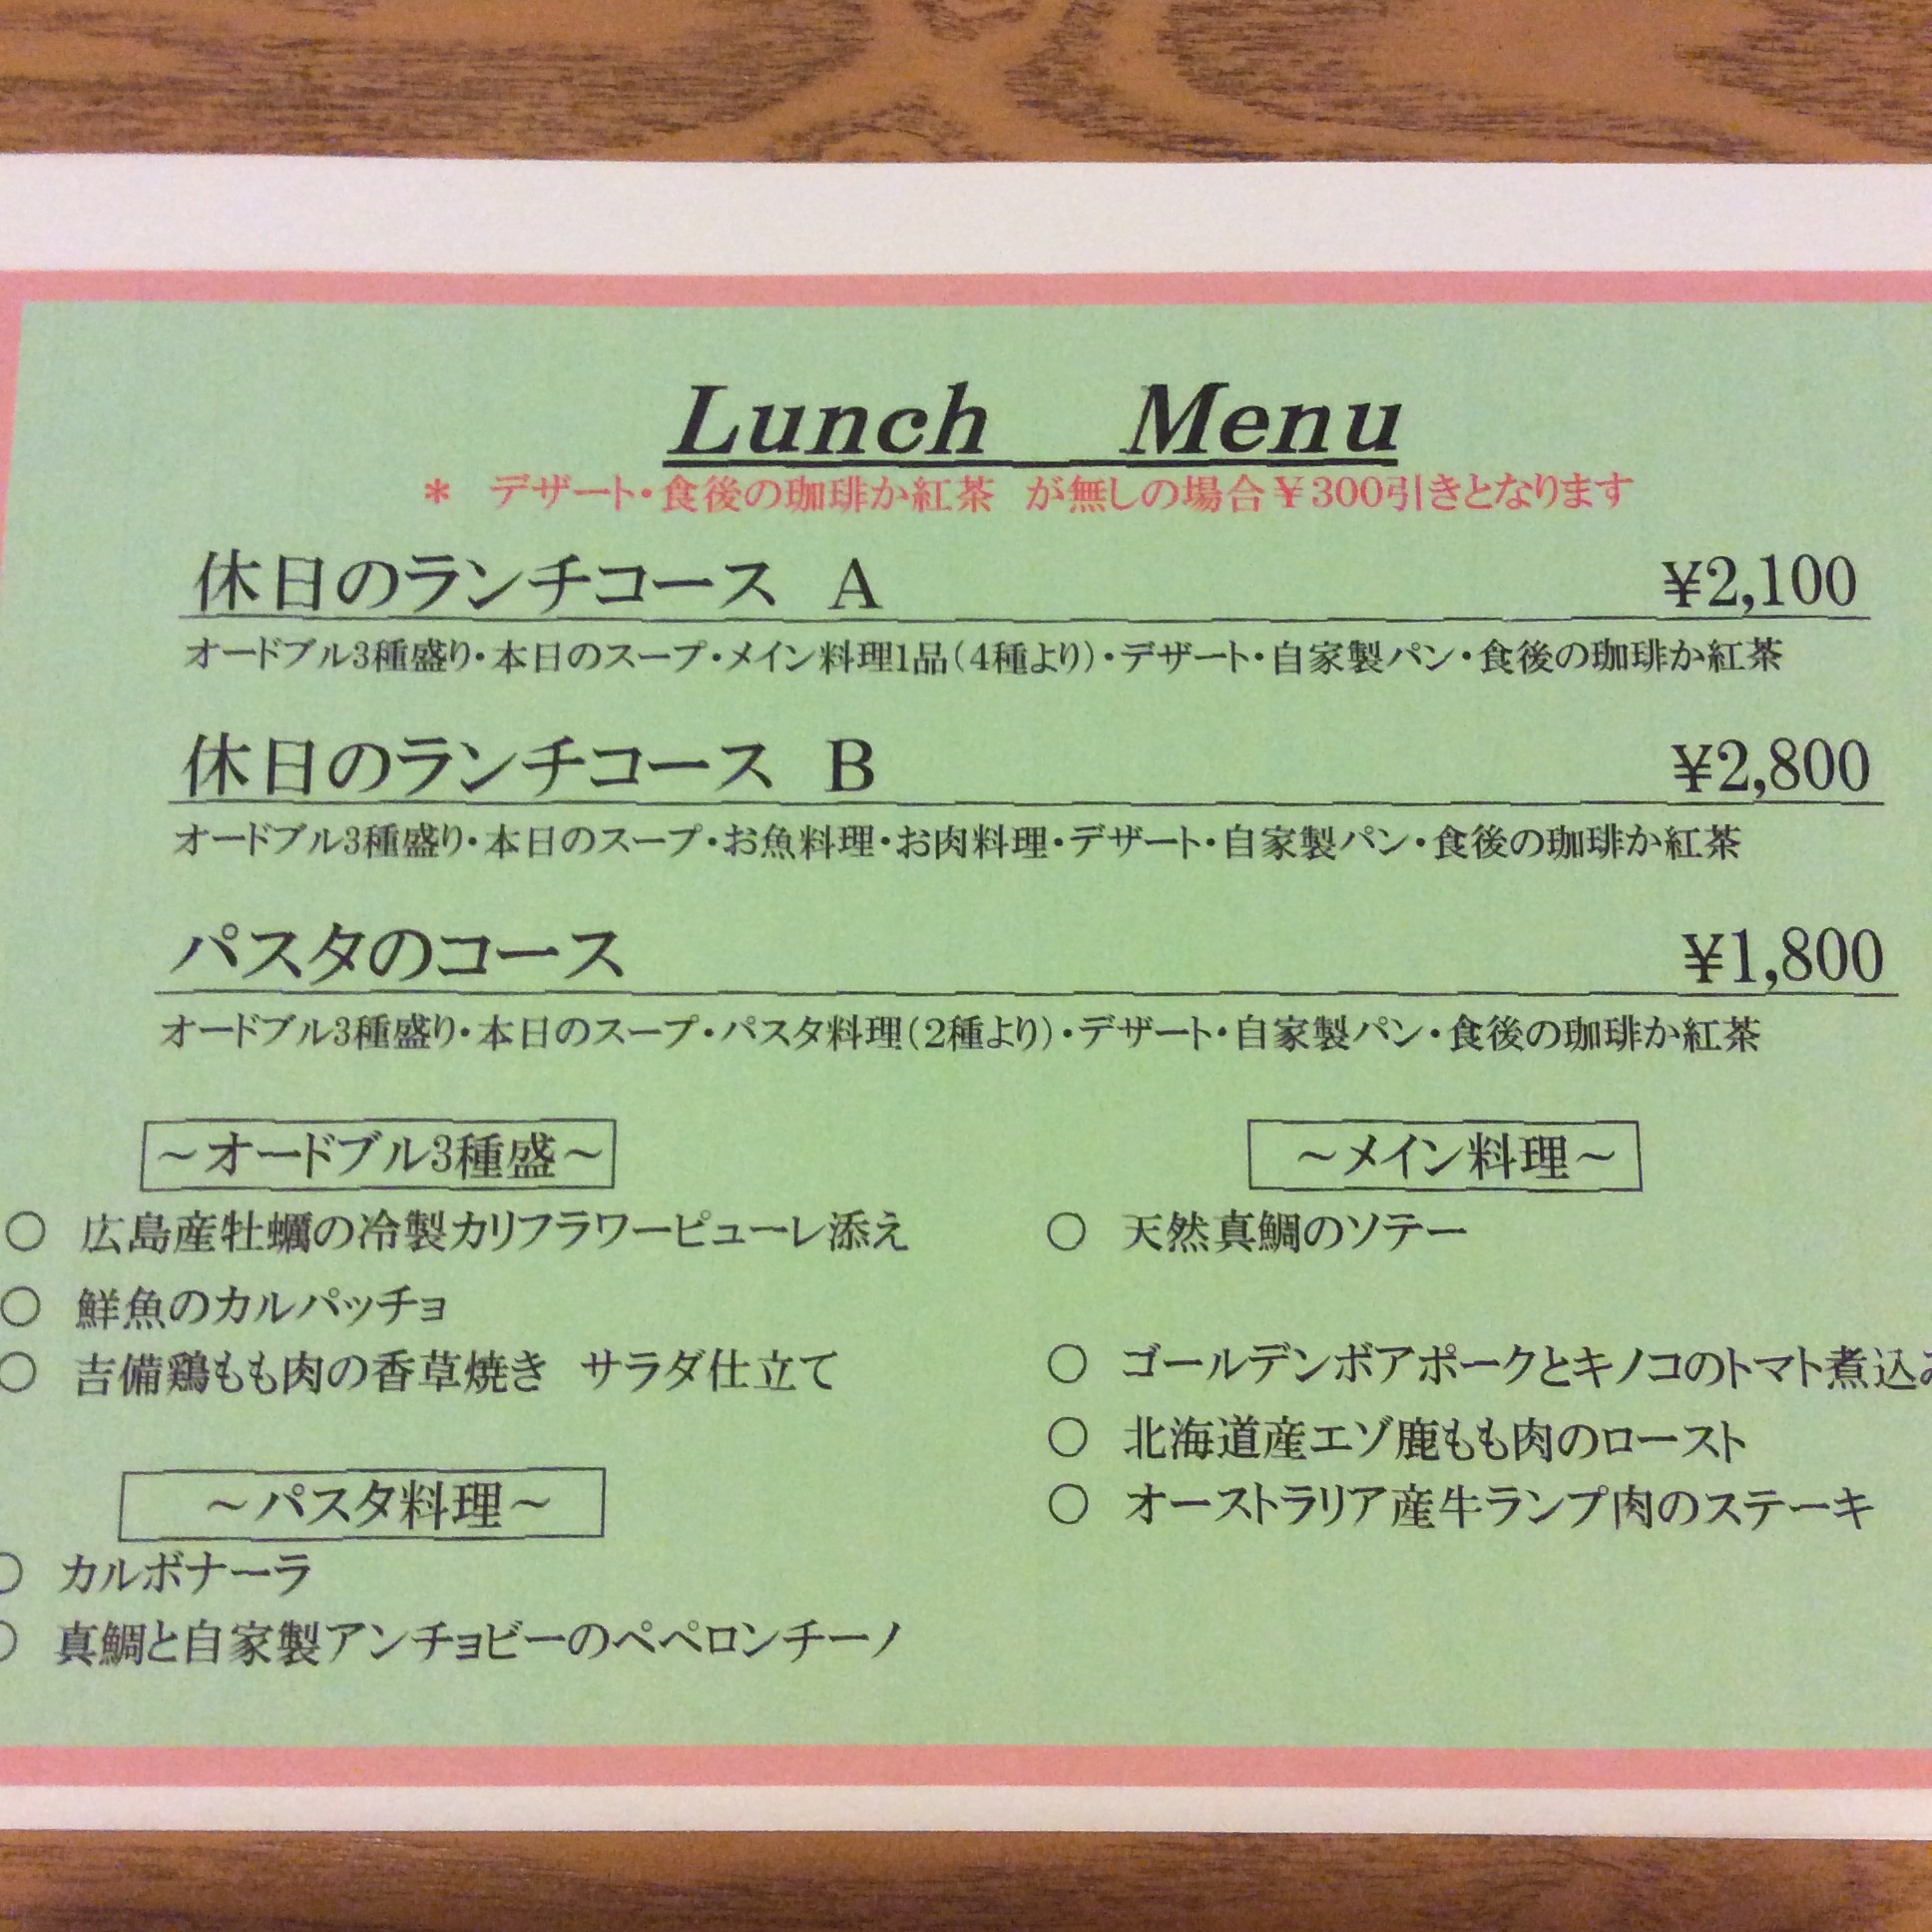 Lunch Menu
＊ デザート・食後の珈琲か紅茶 が無しの場合￥300引きとなります
休日のランチコース A ¥2,100
オードブル3種盛り・本日のスープ・メイン料理1品(4種より)・デザート・自家製パン・食後の珈琲か紅茶
休日のランチコース B ¥2,800
オードブル3種盛り・本日のスープ・お魚料理・お肉料理・デザート・自家製パン・食後の珈琲か紅茶
パスタのコース ¥1,800
オードブル3種盛り・本日のスープ・パスタ料理(2種より)・デザート・自家製パン・食後の珈琲か紅茶
～オードブル3種盛～
○ 広島産牡蠣の冷製カリフラワーピューレ添え
○ 鮮魚のカルパッチョ
○ 吉備鶏もも肉の香草焼き サラダ仕立て
～パスタ料理～
○ カルボナーラ
○ 真鯛と自家製アンチョビーのペペロンチーノ
～メイン料理～
○ 天然真鯛のソテー
○ ゴールデンボアポークとキノコのトマト煮込み
○ 北海道産エゾ鹿もも肉のロースト
○ オーストラリア産牛ランプ肉のステーキ